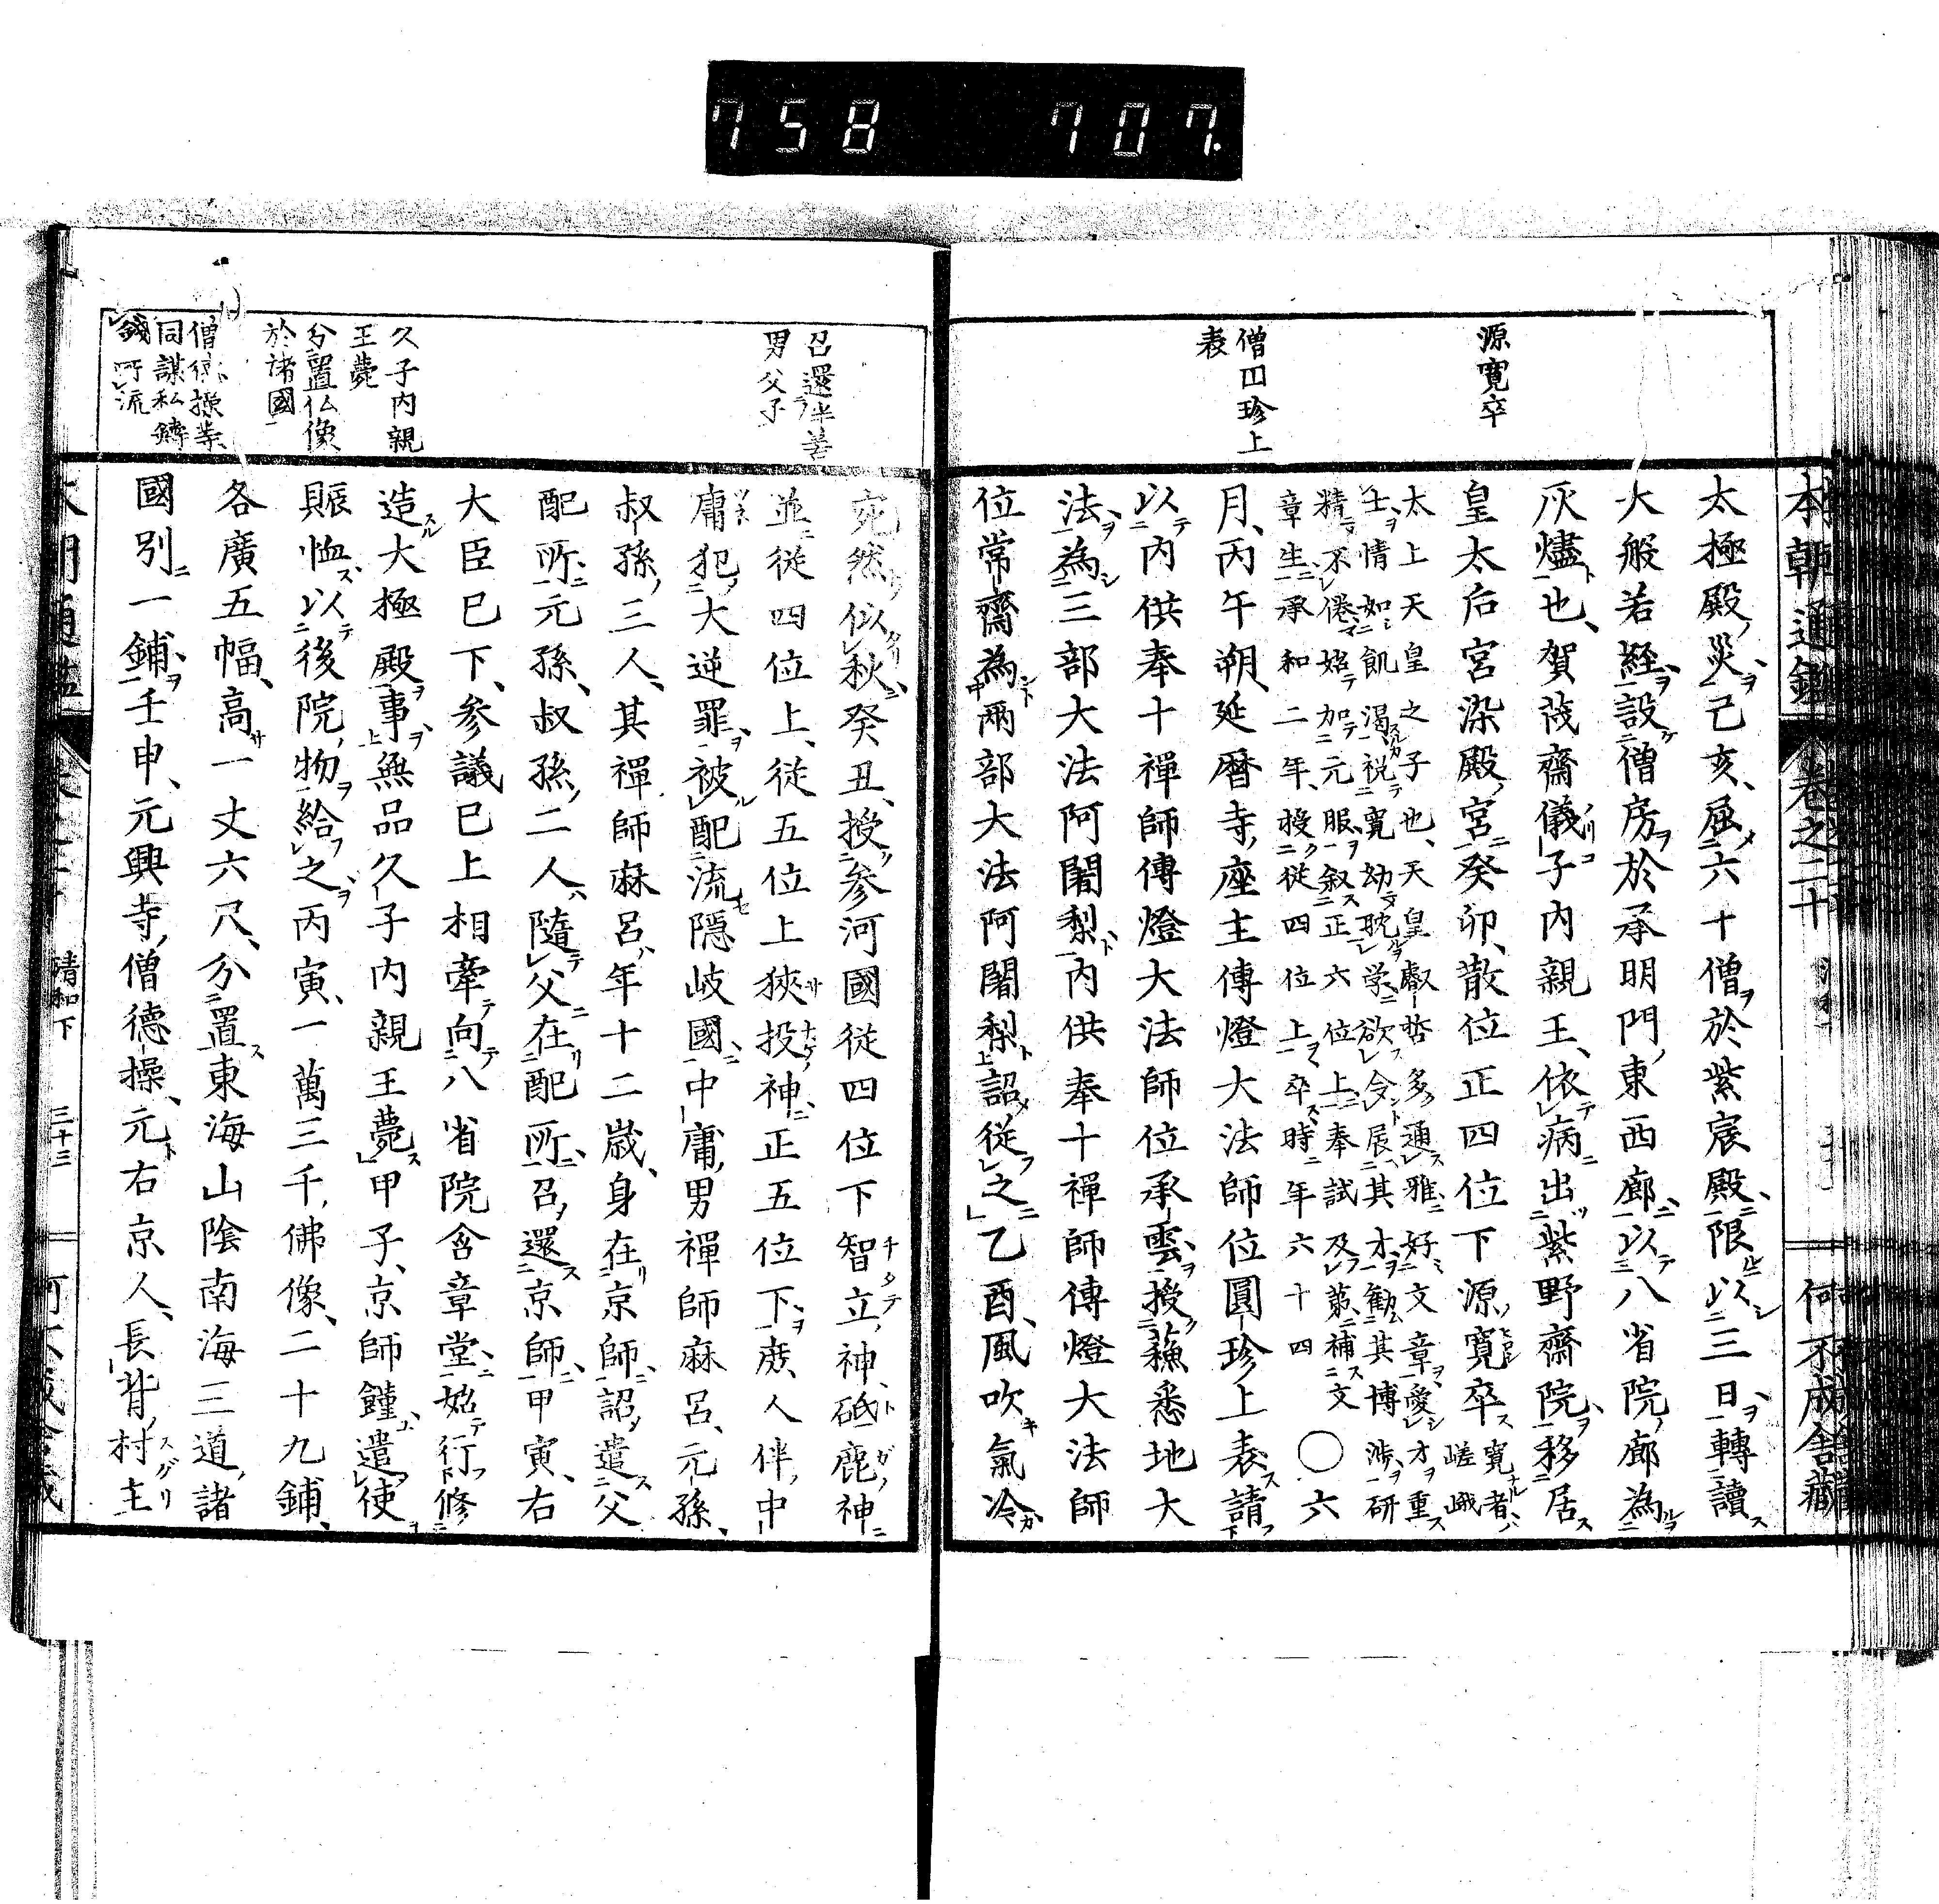 758 707.
本朝通鑑 卷之二十 何不成舍藏
源寛卒
僧円珍上
表
太極殿災己亥屈六十僧於紫宸殿限以三日轉讀
大般若経設僧房於承明門東西廊以八省院廊為
灰燼也賀茂齋儀子内親王依病出紫野齋院移居
皇太后宮染殿宮癸卯散位正四位下源寛卒寛者嵯峨
太上天皇之子也天皇叡哲多通雅好文章愛才重
士情如飢渇祝寛幼耽学欲令展其才勧其博渉研
精不倦始加元服叙正六位上奉試及第補文
章生承和二年授従四位上卒時年六十四〇六
月丙午朔延暦寺座主傳燈大法師位圓珍上表請
以内供奉十禪師傳燈大法師位承雲授蘓悉地大
法為三部大法阿闍梨内供奉十禪師傳燈大法師
位常齋為兩部大法阿闍梨詔従之乙酉風吹氣冷
召還中善
男父子
久子内親
王薨
分置仏像
於諸國
僧徳操等
同謀私鋳
錢所流
宛然似秋癸丑授参河國従四位下智立神砥鹿神
並従四位上従五位上狹投神正五位下庶人伴中
庸犯大逆罪被配流隠岐國中庸男禪師麻呂元孫
叔孫三人其禪師麻呂年十二歳身在京師詔遣父
配所元孫叔孫二人隨父在配所召還京師甲寅右
大臣已下参議已上相牽向八省院含章堂始行修
造大極殿事無品久子内親王薨甲子京師饉遣使
賑恤以後院物給之丙寅一萬三千佛像二十九鋪
各廣五幅高一丈六尺分置東海山陰南海三道諸
國別一鋪壬申元興寺僧徳操元右京人長背村主
清和下 三十三